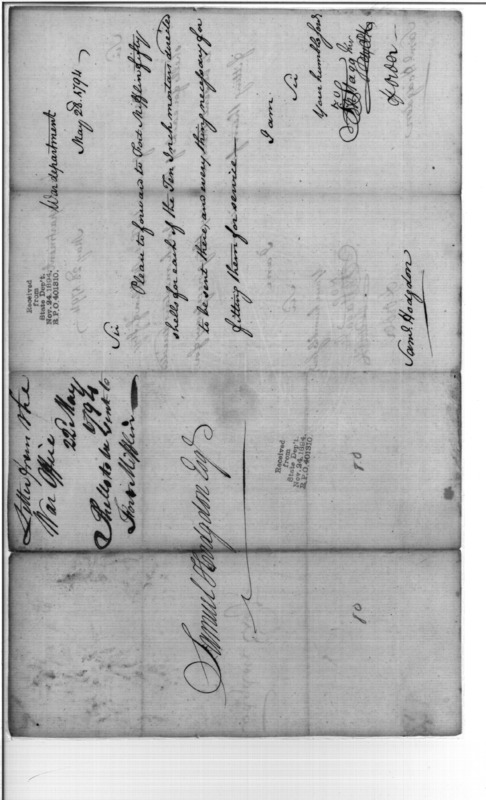 War department
May 22d. 1794
Sir
Please to forward to Fort Mifflin fifty
shells for each of the Ten Inch mortars
to be sent there, and every thing necessary for
fitting them for service —
I am
Sir
Your humble
Stagg
Saml. Hodgdon
Received
from
State Dep't.
Nov. 24, 1894,
R.P.O. 401310.
Letter from the
War Office
22d May
1794
Shells to be sent to
Fort Mifflin
Samuel Hodgdon Esq
Received
from
State Dep't.
Nov. 24, 1894,
R.P.O. 401310.